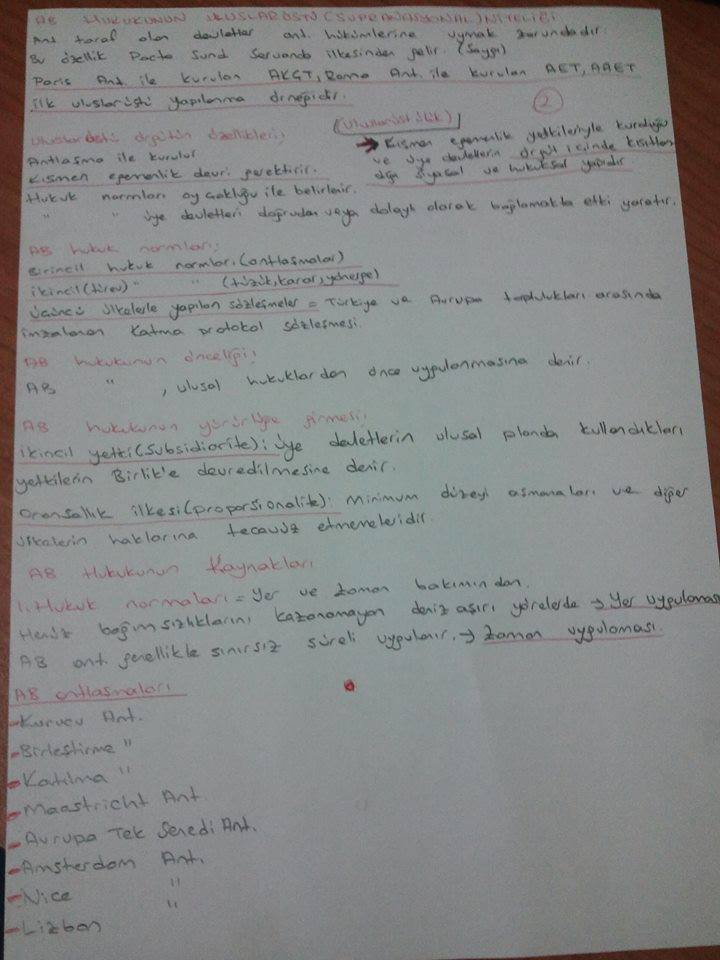 AB HUKUKUNUN ULUSLARÜSTÜ (SUPRANASYONAL) NİTELİĞİ
Ant. taraf olan devletler ant. hükümlerine uymak zorundadır.
Bu özellik Pacta Sund Servanda ilkesinden gelir. (Saygı)
Paris Ant. ile kurulan AKÇT, Roma Ant. ile kurulan AET, AAET
ilk uluslarüstü yapılanma örneğidir.
2
(Uluslarüstülük)
Uluslarüstü örgütün özellikleri;
Antlaşma ile kurulur
Kısmen egemenlik devri gerektirir.
Hukuk normları oy çokluğu ile belirlenir.
" " üye devletleri doğrudan veya dolaylı olarak bağlamakta etki yaratır.
→ Kısmen egemenlik yetkileriyle kurduğu
ve üye devletlerin örgüt içinde kısıtlan
dığı siyasal ve hukuksal yapıdır
AB hukuk normları;
Birincil hukuk normları (antlaşmalar)
ikincil (türev) " " (tüzük, karar, yönerge)
üçüncü ülkelerle yapılan sözleşmeler = Türkiye ve Avrupa toplulukları arasında
imzalanan Katma protokol sözleşmesi.
AB hukukunun önceliği;
AB " , ulusal hukuklardan önce uygulanmasına denir.
AB hukukunun yürürlüğe girmesi;
ikincil yetki (Subsidiarite); üye devletlerin ulusal planda kullandıkları
yetkilerin Birlik'e devredilmesine denir.
Oransallık ilkesi (proporsionalite): minimum düzeyi aşmamaları ve diğer
ülkelerin haklarına tecavüz etmemeleridir.
AB Hukukunun Kaynakları
1. Hukuk normaları = Yer ve zaman bakımından.
Henüz bağımsızlıklarını kazanamayan deniz aşırı yörelerde → Yer uygulaması
AB ant. genellikle sınırsız süreli uygulanır. → Zaman uygulaması.
AB antlaşmaları
- Kurucu Ant.
- Birleştirme "
- Katılma "
- Maastricht Ant
- Avrupa Tek Senedi Ant.
- Amsterdam Ant.
- Nice "
- Lizbon "